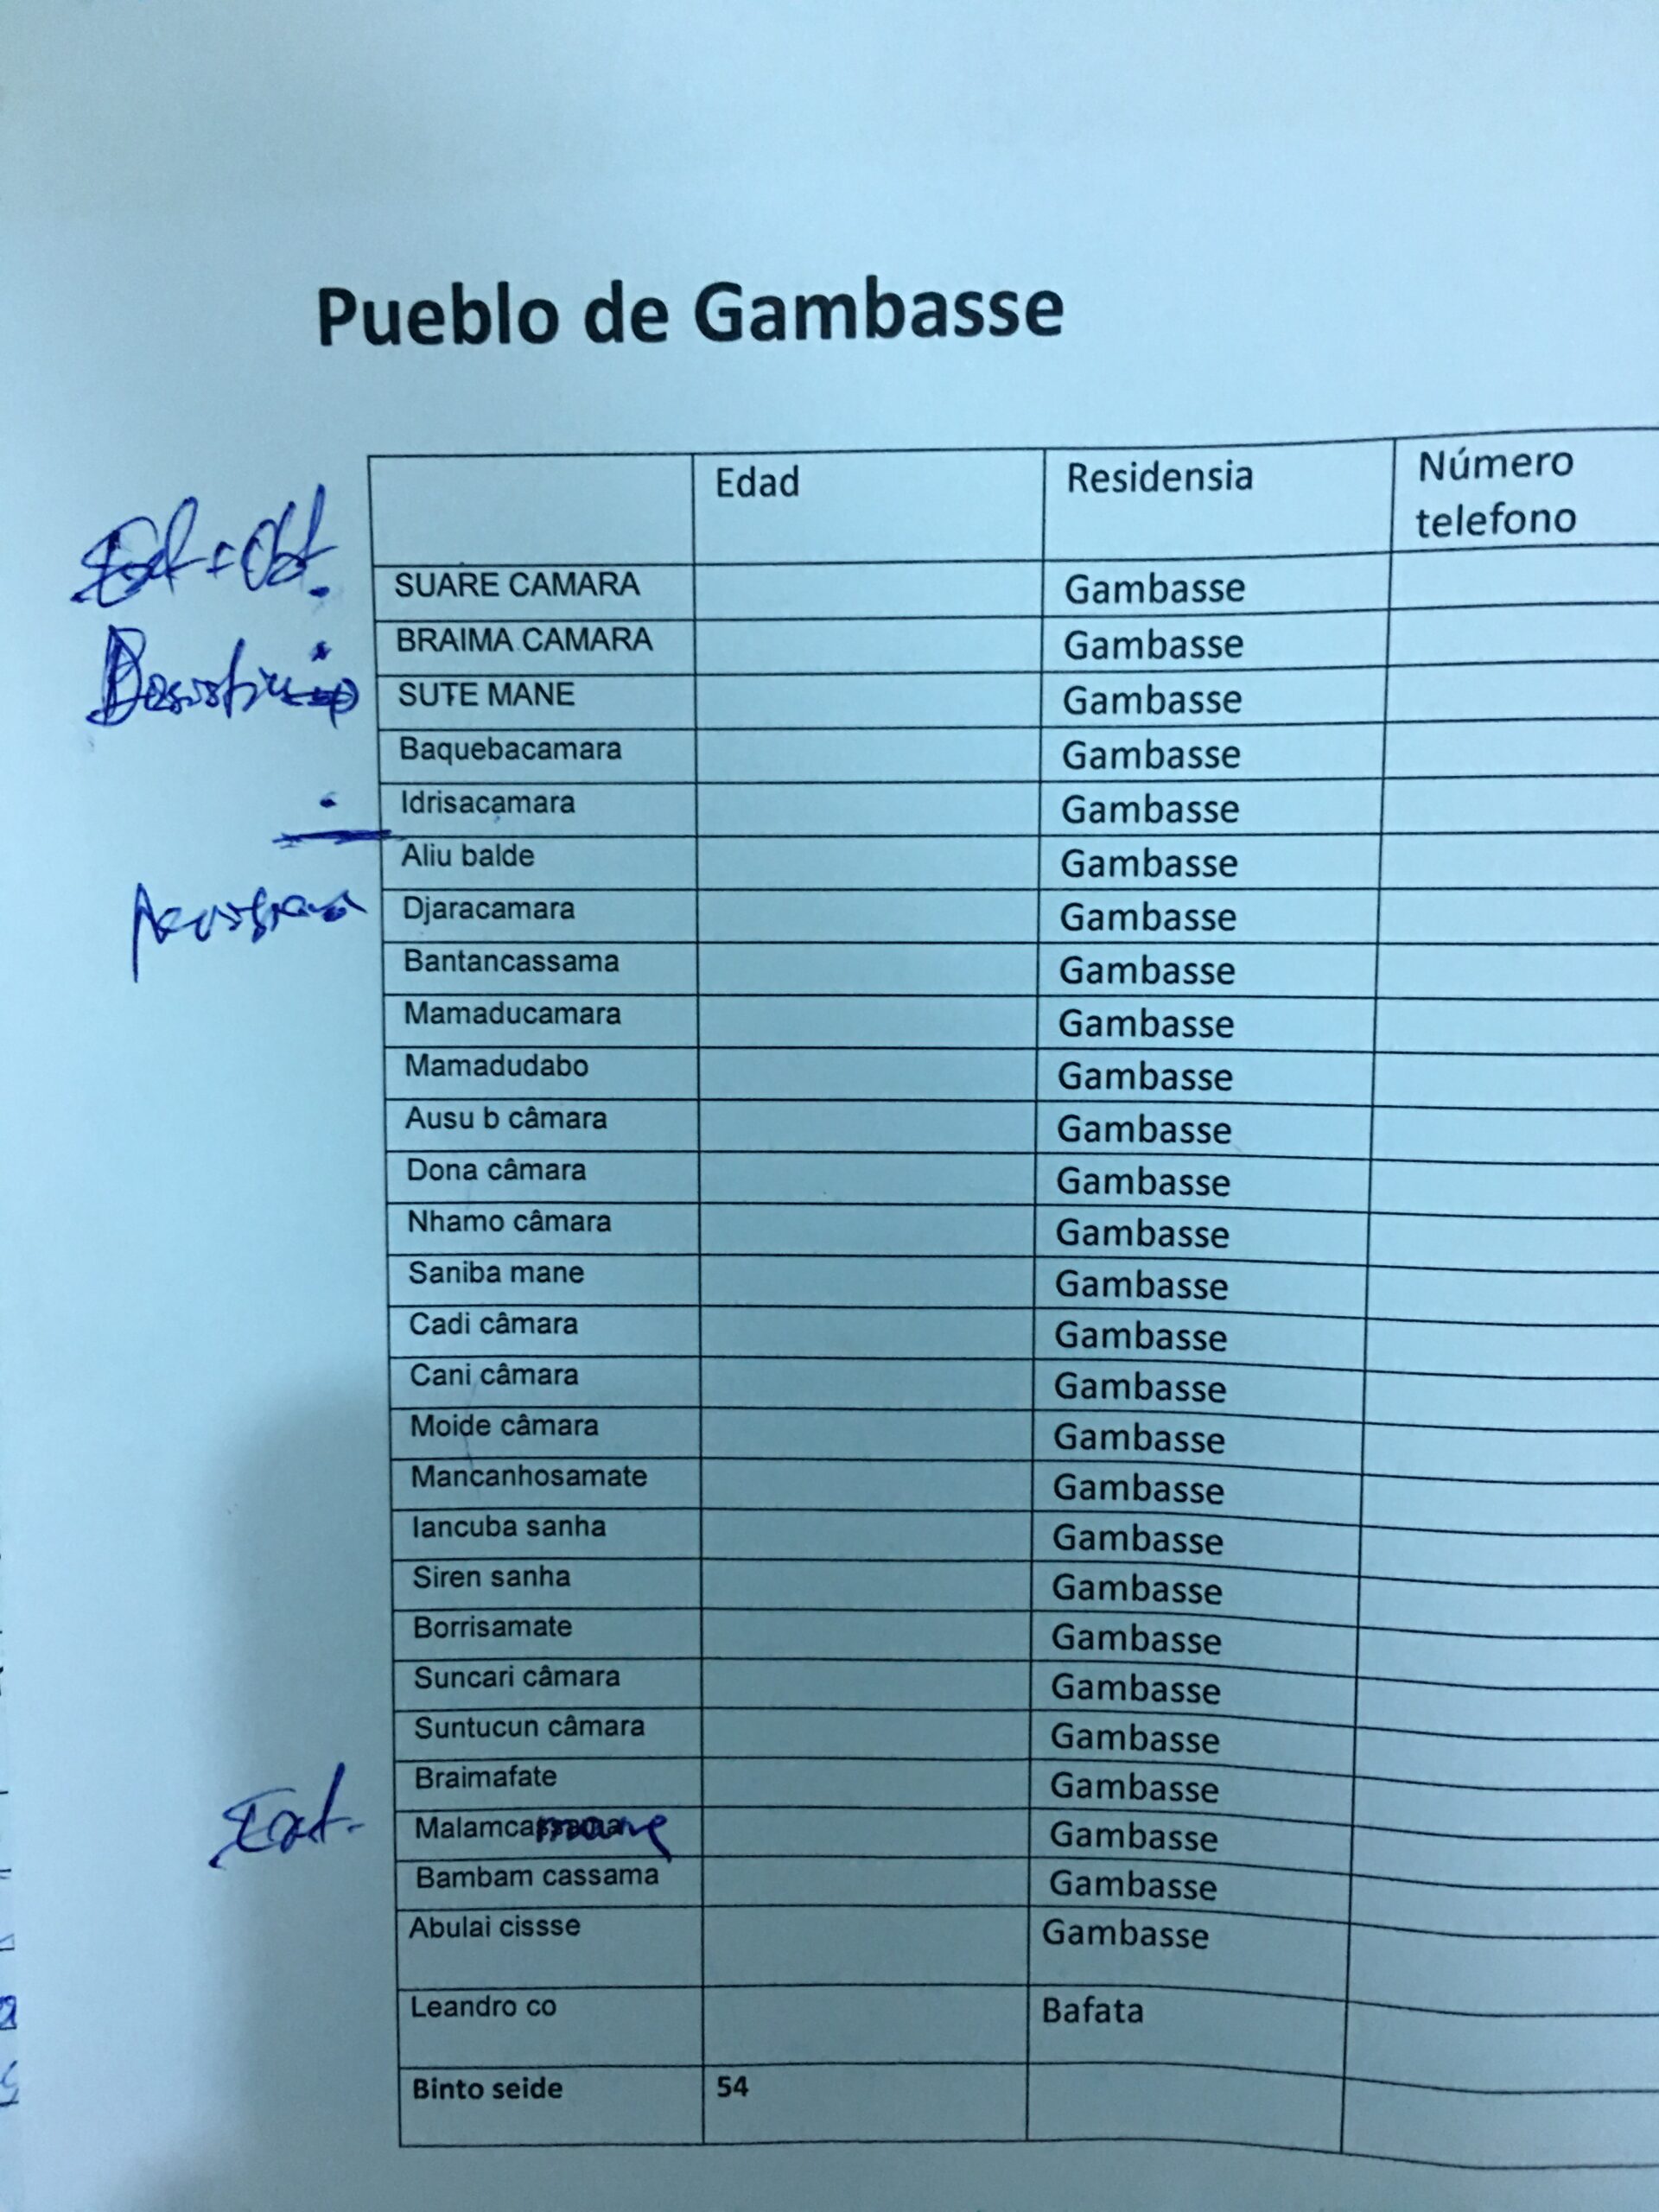 Pueblo de Gambasse
Edad Residensia Número telefono
SUARE CAMARA Gambasse
BRAIMA CAMARA Gambasse
SUTE MANE Gambasse
Baquebacamara Gambasse
Idrisacamara Gambasse
Aliu balde Gambasse
Djaracamara Gambasse
Bantancassama Gambasse
Mamaducamara Gambasse
Mamadudabo Gambasse
Ausu b câmara Gambasse
Dona câmara Gambasse
Nhamo câmara Gambasse
Saniba mane Gambasse
Cadi câmara Gambasse
Cani câmara Gambasse
Moide câmara Gambasse
Mancanhosamate Gambasse
Iancuba sanha Gambasse
Siren sanha Gambasse
Borrisamate Gambasse
Suncari câmara Gambasse
Suntucun câmara Gambasse
Braimafate Gambasse
mane Gambasse
Bambam cassama Gambasse
Abulai cissse Gambasse
Leandro co Bafata
Binto seide 54